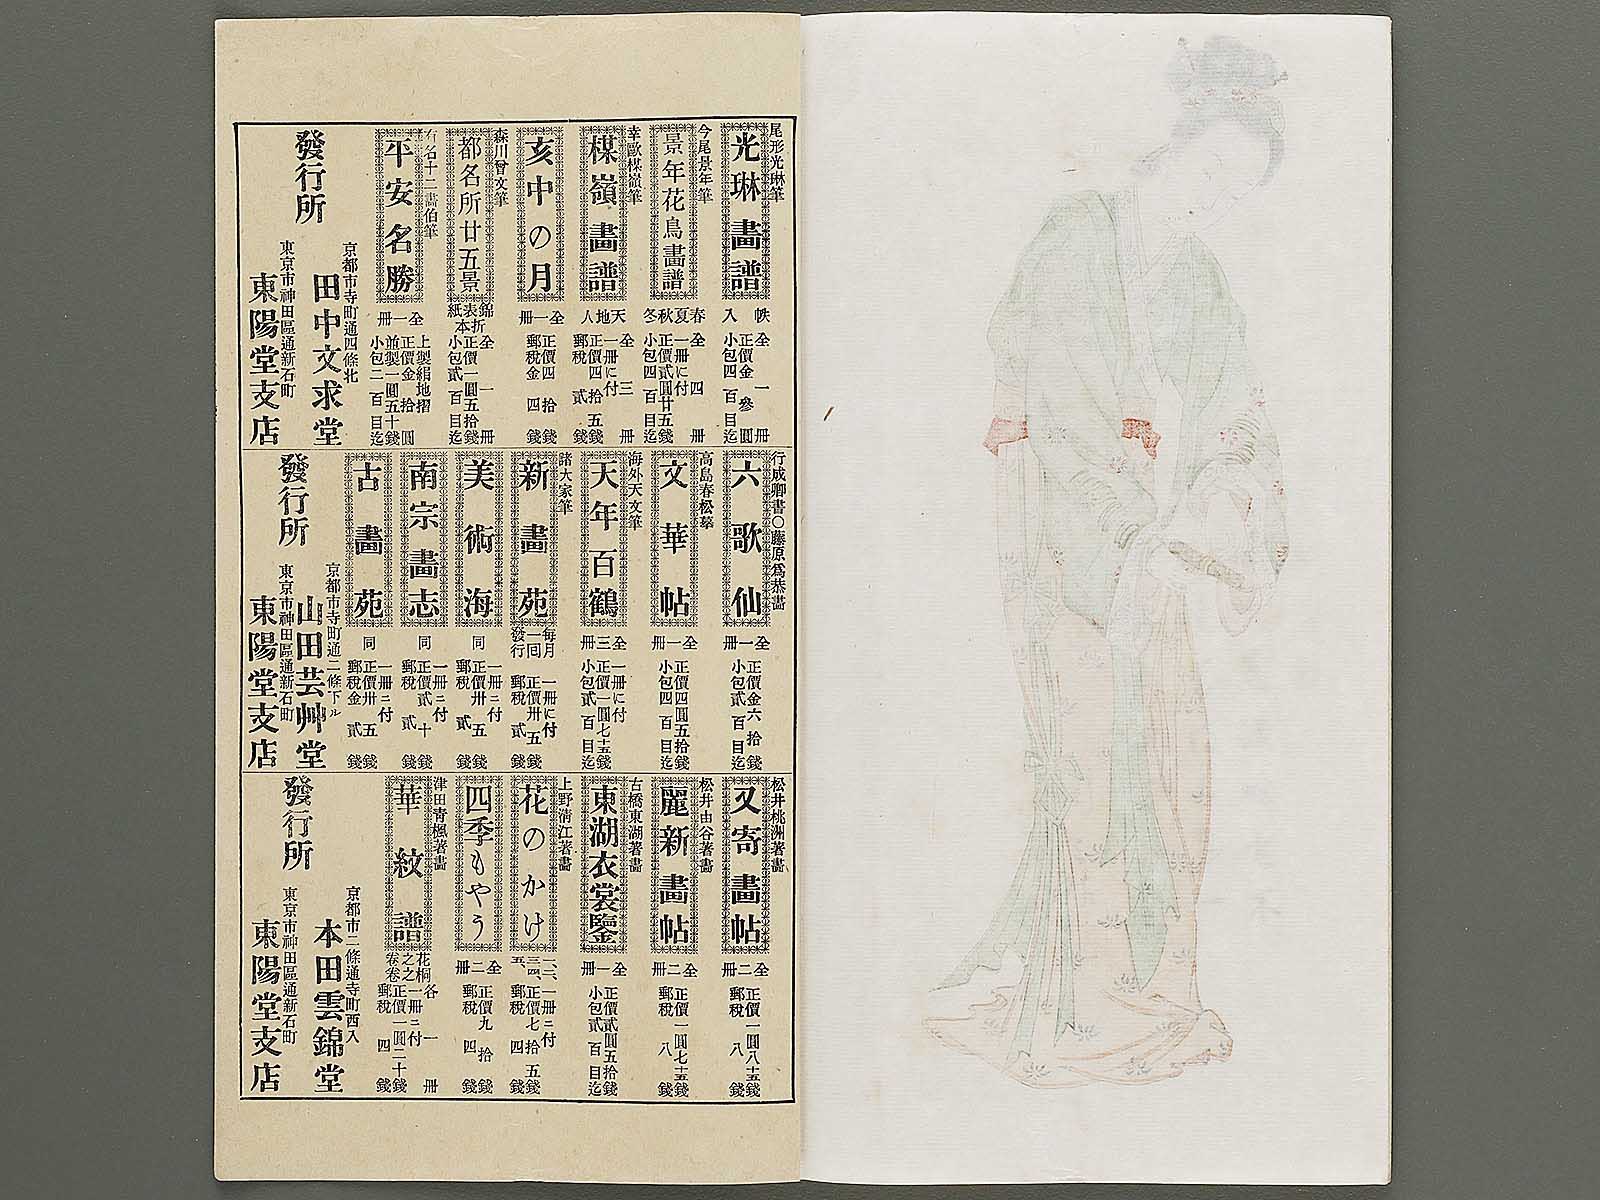 尾形光琳筆
光琳畫譜
帙入
全一冊
正價金參圓
小包四百目迄
今尾景年筆
景年花鳥畫譜
春夏秋冬
全四冊
一冊に付
正價貳圓廿五錢
小包四百目迄
幸野楳嶺筆
楳嶺畫譜
天地人
全三冊
一冊に付
正價四拾五錢
郵稅貳錢
亥中の月
全一冊
正價四拾錢
郵稅金四錢
森川曾文筆
都名所廿五景
錦表紙折本
全一冊
正價一圓五拾錢
小包貳百目迄
有名十二畫伯筆
平安名勝
全一冊
上製絹地摺
正價金拾圓
並製一圓五十錢
小包二百目迄
發行所
京都市寺町通四條北
田中文求堂
東京市神田區通新石町
東陽堂支店
行成卿書〇藤原爲恭畵
六歌仙
全一冊
正價金六拾錢
小包貳百目迄
高島春松摹
文華帖
全一冊
正價四圓五拾錢
小包四百目迄
海外天年筆
天年百鶴
全三冊
一冊に付
正價一圓七十五錢
小包貳百目迄
諸大家筆
新畫苑
每月一回發行
一冊に付
正價卅五錢
郵稅貳錢
美術海
同
一冊ニ付
正價卅五錢
郵稅貳錢
南宗畫志
同
一冊ニ付
正價貳十錢
郵稅貳錢
古畫苑
同
一冊ニ付
正價卅五錢
郵稅金貳錢
發行所
京都市寺町通二條下ル
山田芸艸堂
東京市神田區通新石町
東陽堂支店
松井桃洲著畵
又寄畫帖
全二冊
正價一圓八十五錢
郵稅八錢
松井由谷著畵
麗新畫帖
全二冊
正價一圓七十五錢
郵稅八錢
古橋東湖著畵
東湖衣裳鑒
全一冊
正價貳圓五拾錢
小包貳百目迄
上野淸江著畵
花のかけ
一、二、三、四、五、
一冊ニ付
正價七拾五錢
郵稅四錢
四季もやう
全二冊
正價九拾錢
郵稅四錢
津田靑楓著畵
華紋譜
花之卷
桐之卷
各一冊
一冊ニ付
正價一圓二十錢
郵稅四錢
發行所
京都市二條通寺町西入
本田雲錦堂
東京市神田區通新石町
東陽堂支店